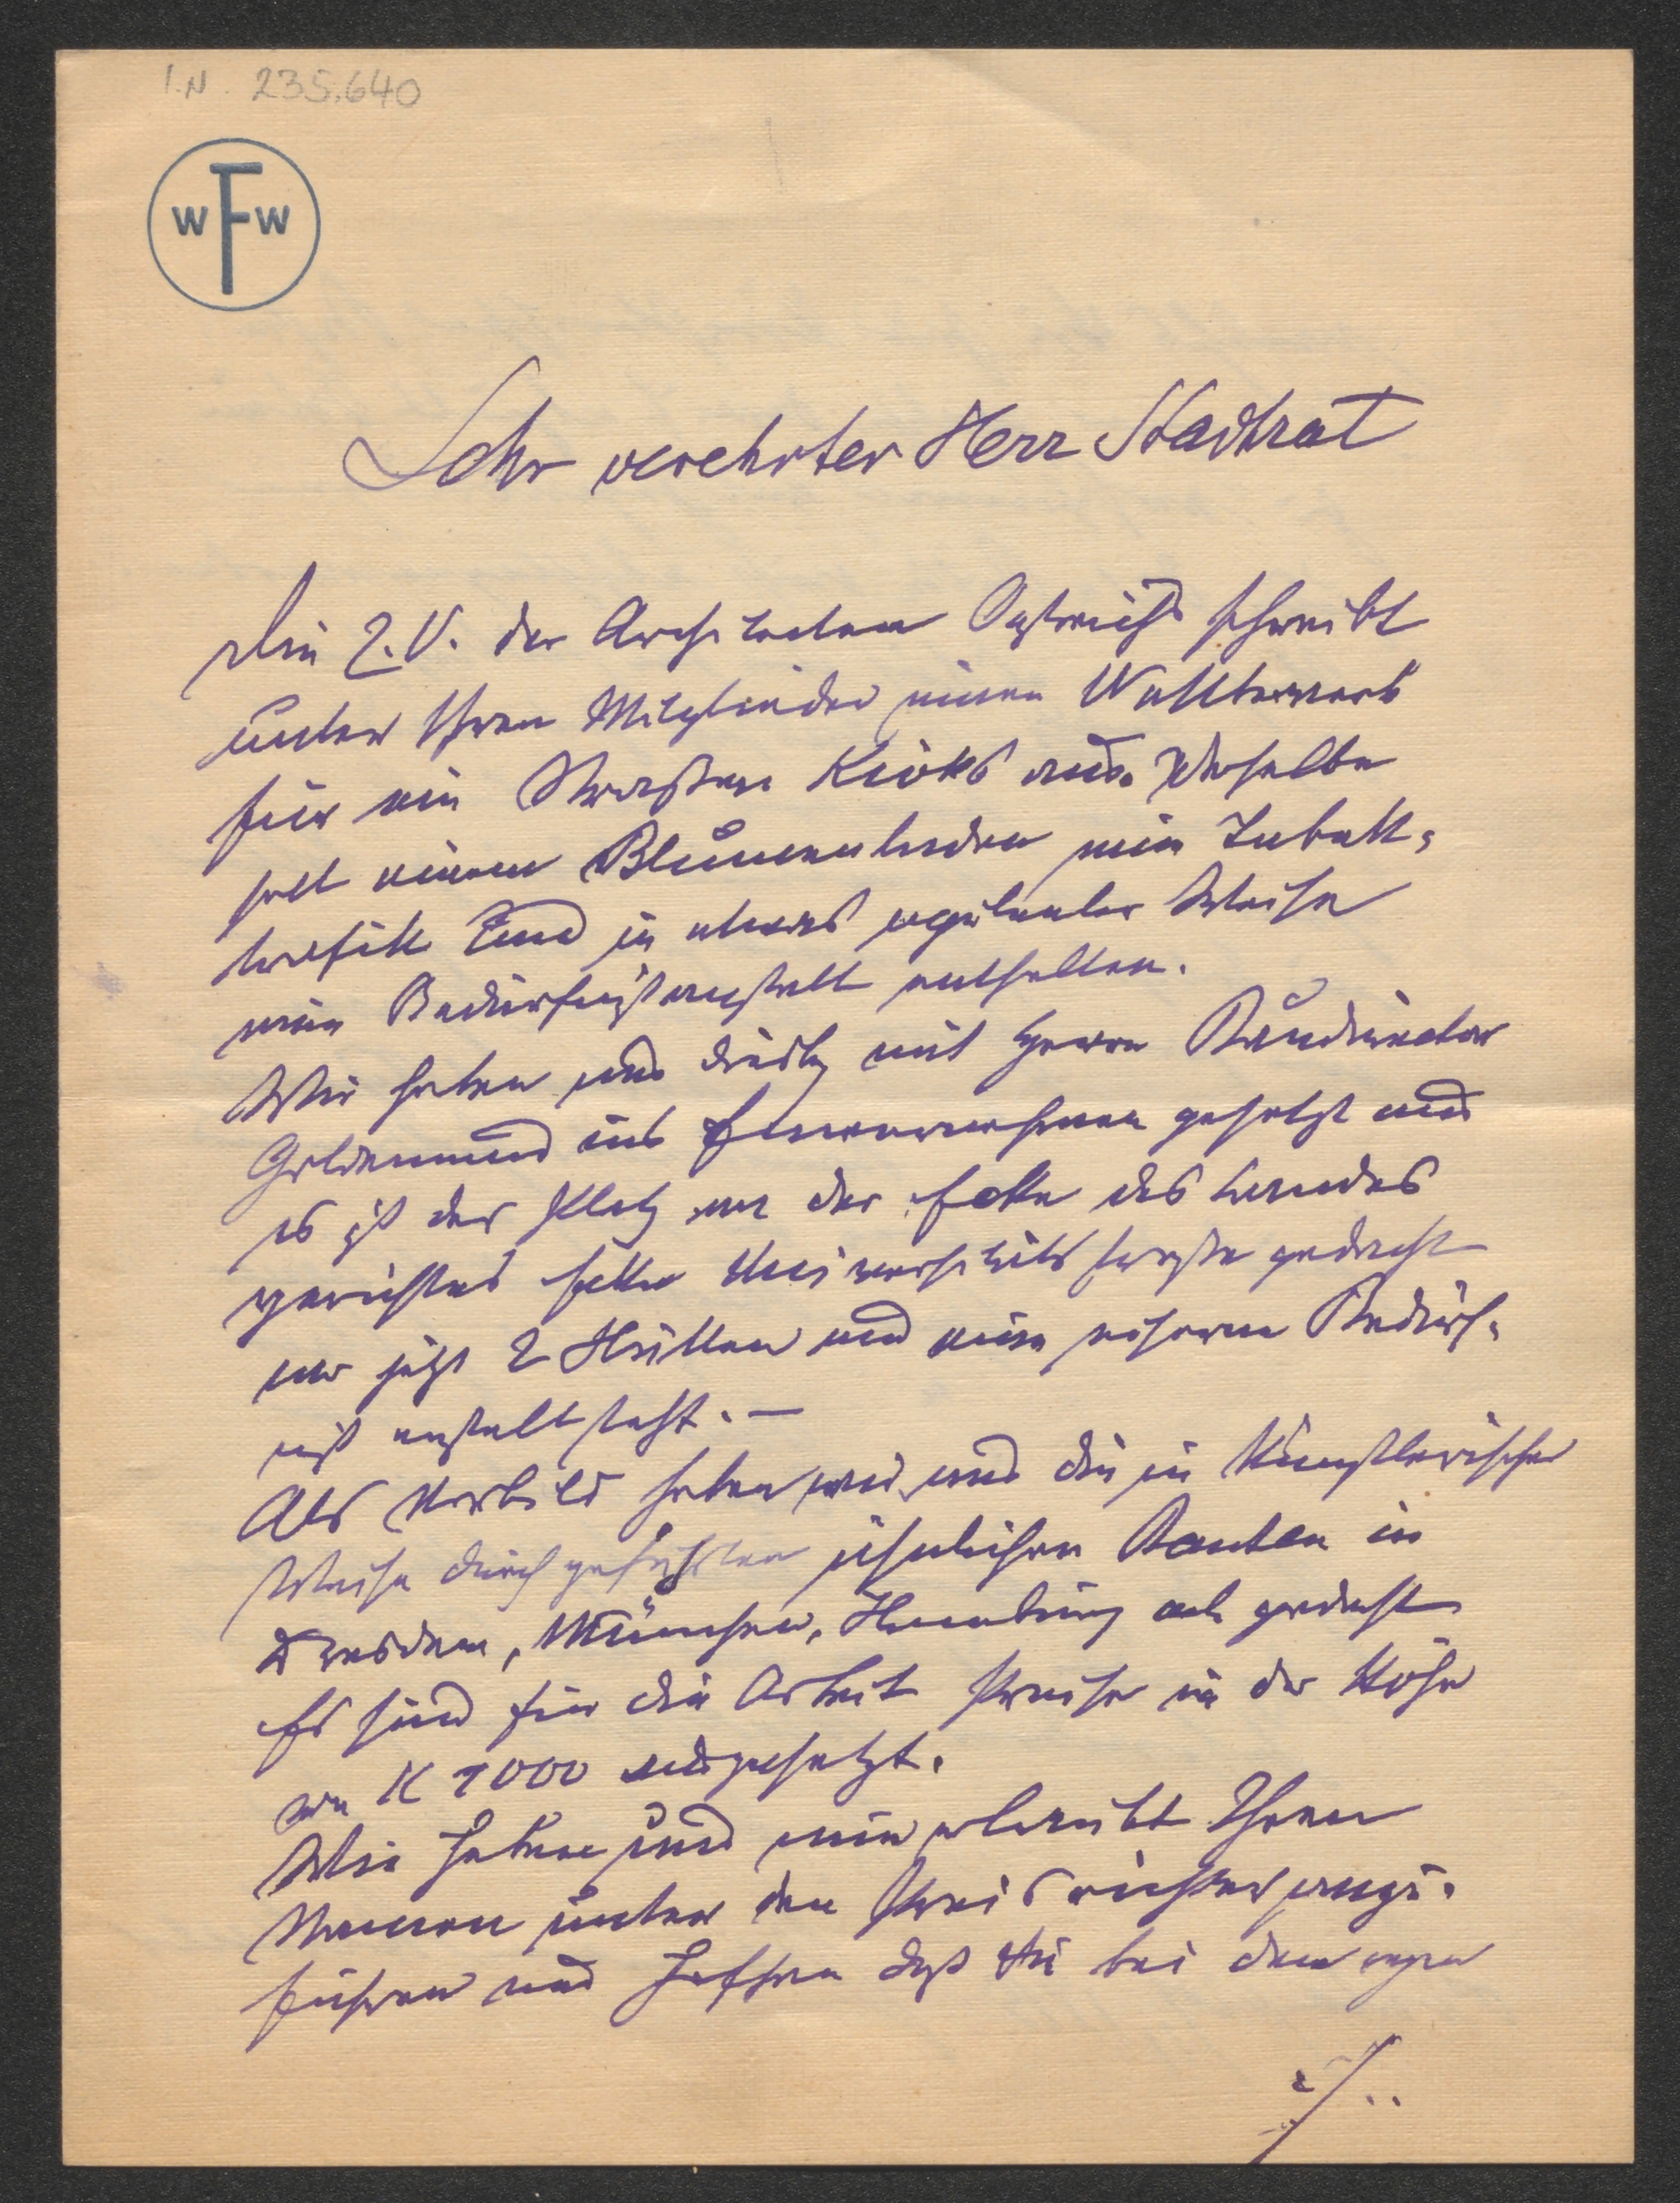 I.N. 235.640
W F W
Sehr verehrter Herr Stadtrat
Die Z.V. der Architecten Östreichs schreibt
unter Ihren Mitglieder einen Wettbewerb
für ein Strassen Kioks aus. Derselbe
soll einen Blumenladen eine Tabak-
trafik und in etwas
eine Bedürfnisanstalt enthalten.
Wir haben uns diesbez mit Herrn Baudirector
Goldemund ins Einvernehmen gesetzt und
es ist der Platz an der Ecke des Landes
gerichtes Universitätsstrasse gedacht
wo jetzt 2 Hütten und eine eiserne Bedürf-
niss anstalt steht. —
Als Vorbild haben wir uns die in künstlerischer
Weise durchgeführten ähnlichen Bauten in
Dresden, München, Hamburg ect gedacht
Es sind für die Arbeit Preise in der Höhe
von K 1000 ausgesetzt.
Wir haben uns nun erlaubt Ihren
Namen unter den Preisrichter anzu-
führen und hoffen dass Sie bei dem regen
./..